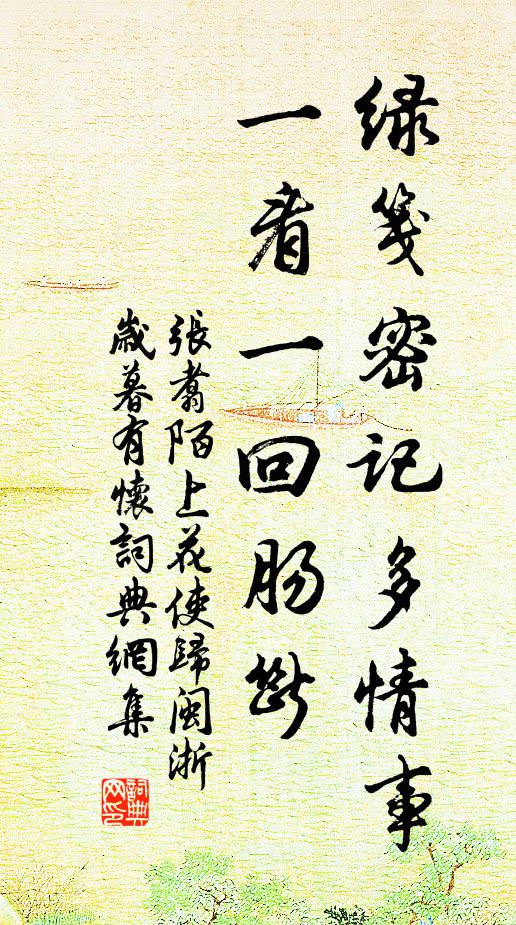 緑箋密记多情事
一看一回肠断
張翥陌上花使歸閩浙
歲暮有懷詞典網集
詞典网印